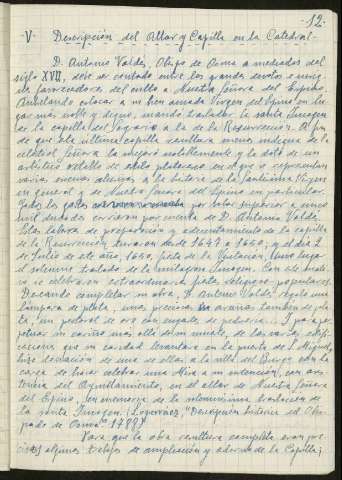 12.
V- Descripción del Altar y Capilla en la Catedral-
D. Antonio Valdés, Obispo de Osma a mediados del
siglo XVII, debe ser contado entre los grandes devotos e insig-
nes favorecedores del culto a Nuestra Señora del Espino.
Anhelando colocar a su bien amada Virgen del Espino en lu-
gar más noble y digno, mandó trasladar la santa Imagen
de la capilla del Sagrario a la de la Resurrección. A fin
de que esta última capilla resultara menos indigna de la
celestial Señora la mejoró notablemente y la dotó de un
artístico retablo de estilo plateresco en el que se representan
varias escenas alusivas a la historia de la Santísima Virgen
en general y de Nuestra Señora del Espino en particular.
Todos los gastos por valor superior a cinco
mil ducados corrieron por cuenta de D. Antonio Valdés.
Estas labores de preparación y adecentamiento de la capilla
de la Resurrección duraron desde 1647 a 1650, y el día 2
de Julio de este año, 1650, fiesta de la Visitación, tuvo lugar
el solemne traslado de la milagrosa Imagen. Con este moti-
vo se celebraron extraordinarias fiestas religioso populares.
Deseando completar su obra, D. Antonio Valdés regaló una
lámpara de plata, una preciosa araña también de pla-
ta, un pectoral de oro con engaste de pedrería... Y para pe-
petuar su cariño más allá de su muerte, de las varias edifi-
caciones que en su edad levantara en la puerta de S. Miguel,
hizo donación de una de ellas a la villa del Burgo con la
carga de hacer celebrar una Misa a su intención, con asis-
tencia del Ayuntamiento, en el altar de Nuestra Señora
del Espino, en memoria de la solemnísima traslación de
la santa Imagen. (Loperráez, "Descripción histórica del Obis-
pado de Osma" 1788)
Para que la obra resultara completa eran pre-
cisos algunos trabajos de ampliación y adorno de la Capilla;